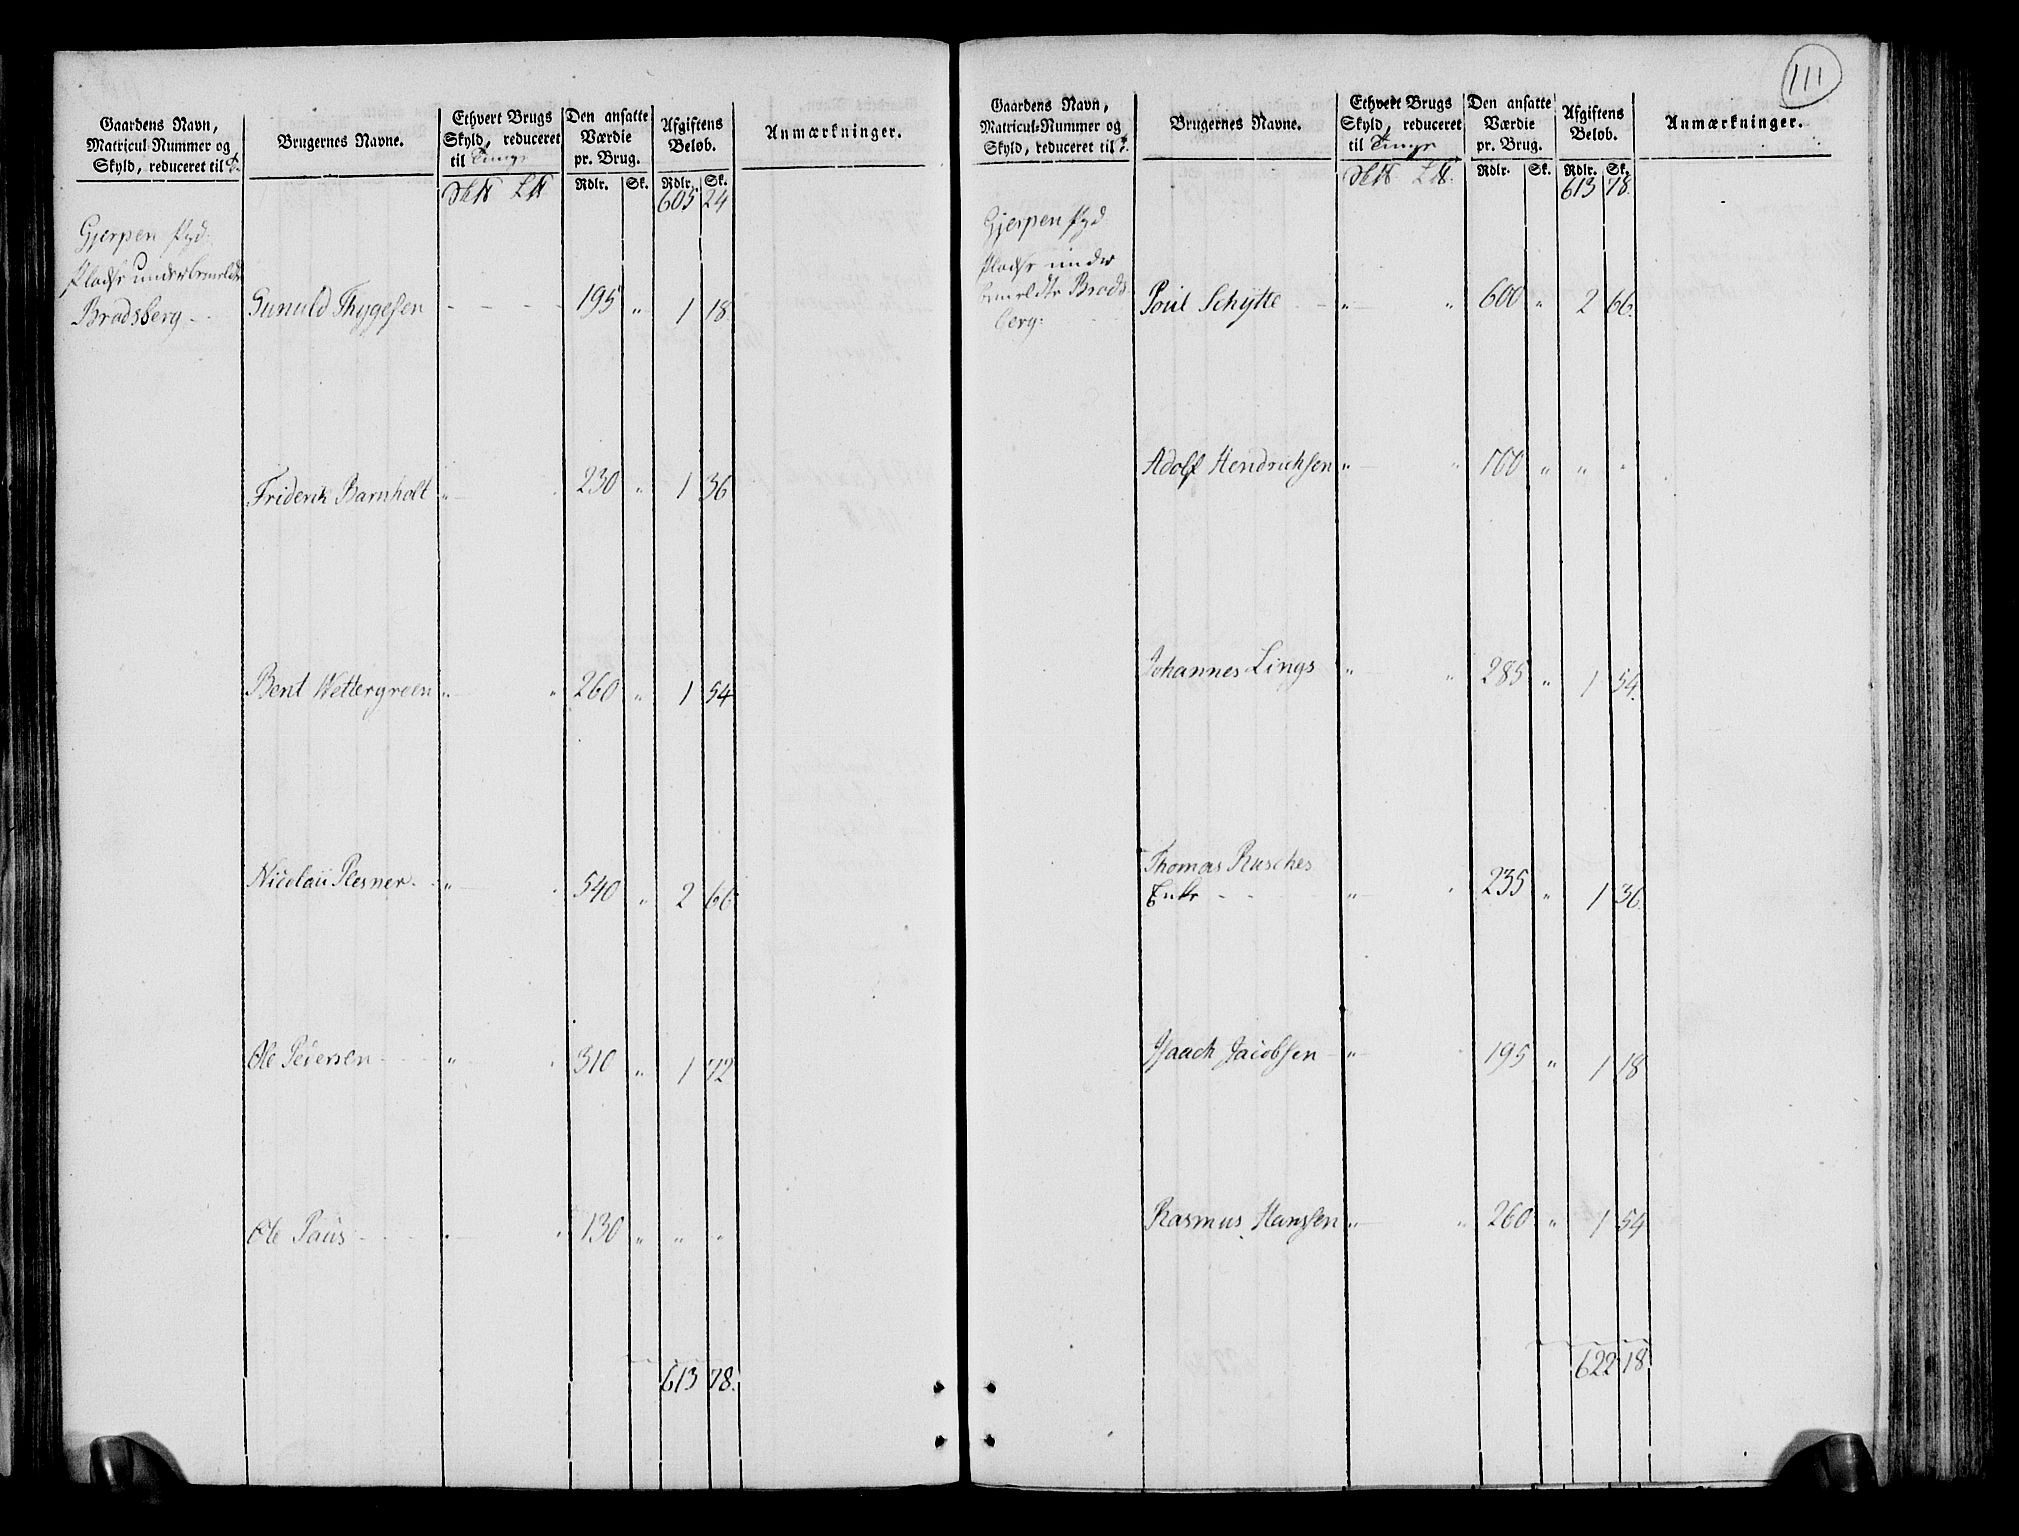 Gaardens Navn,
Matricul-Nummer og
Skyld, reduceret til
Brugernes Navne.
Ethvert Brugs
Skyld, reduceret
til Tunge
Den ansatte
Værdie
pr. Brug.
Afgiftens
Beløb.
Anmærkninger.
Rdlr. Sk. Rdlr. Sk.
605 24
Gjerpen
Pladse under bemeldte
Bradsberg
Gunuld Thygesen 195 " 1 18
Friderik Barnholt " " 230 " 1 36
Bent Wettergreen " " 260 " 1 54
Nicolai Plesner " " 540 " 2 66
Ole Petersen " " 310 " 1 72
Ole Paus " " 130 " " "
613 78.
111
Gaardens Navn,
Matricul-Nummer og
Skyld, reduceret til
Brugernes Navne.
Ethvert Brugs
Skyld, reduceret
til Tunge
Den ansatte
Værdie
pr. Brug.
Afgiftens
Beløb.
Anmærkninger.
Rdlr. Sk. Rdlr. Sk.
613 78.
Gjerpen
Pladse under
bemeldte Brads-
berg
Poul Schytte " " 600 " 2 66.
Adolf Hendrichsen " " 100 " " "
Johannes Lings " " 285 " 1 54.
Thomas Rusches
Enke " " 235 " 1 36
Isaach Jacobsen " " 195 " 1 18
Rasmus Hanssen " " 260 " 1 54
622 18